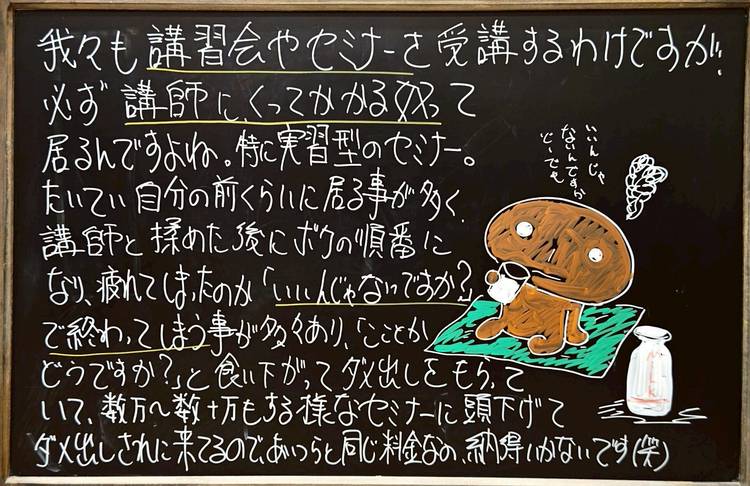 我々も講習会やセミナーを受講するわけですが、
必ず講師にくってかかる奴って
居るんですよね。特に実習型のセミナー。
たいてい自分の前くらいに居る事が多く、
講師と揉めた後にボクの順番に
なり、疲れてしまったのか「いいんじゃないですか?」
で終わってしまう事が多々あり、「こことか
どうですか?」と食い下がってダメ出しをもらって
いて、数万〜数十万もする様なセミナーに頭下げて
ダメ出しされに来てるので、あいつらと同じ料金なの、納得いかないです(笑)
いいんじゃ
ないんですか
どーでも